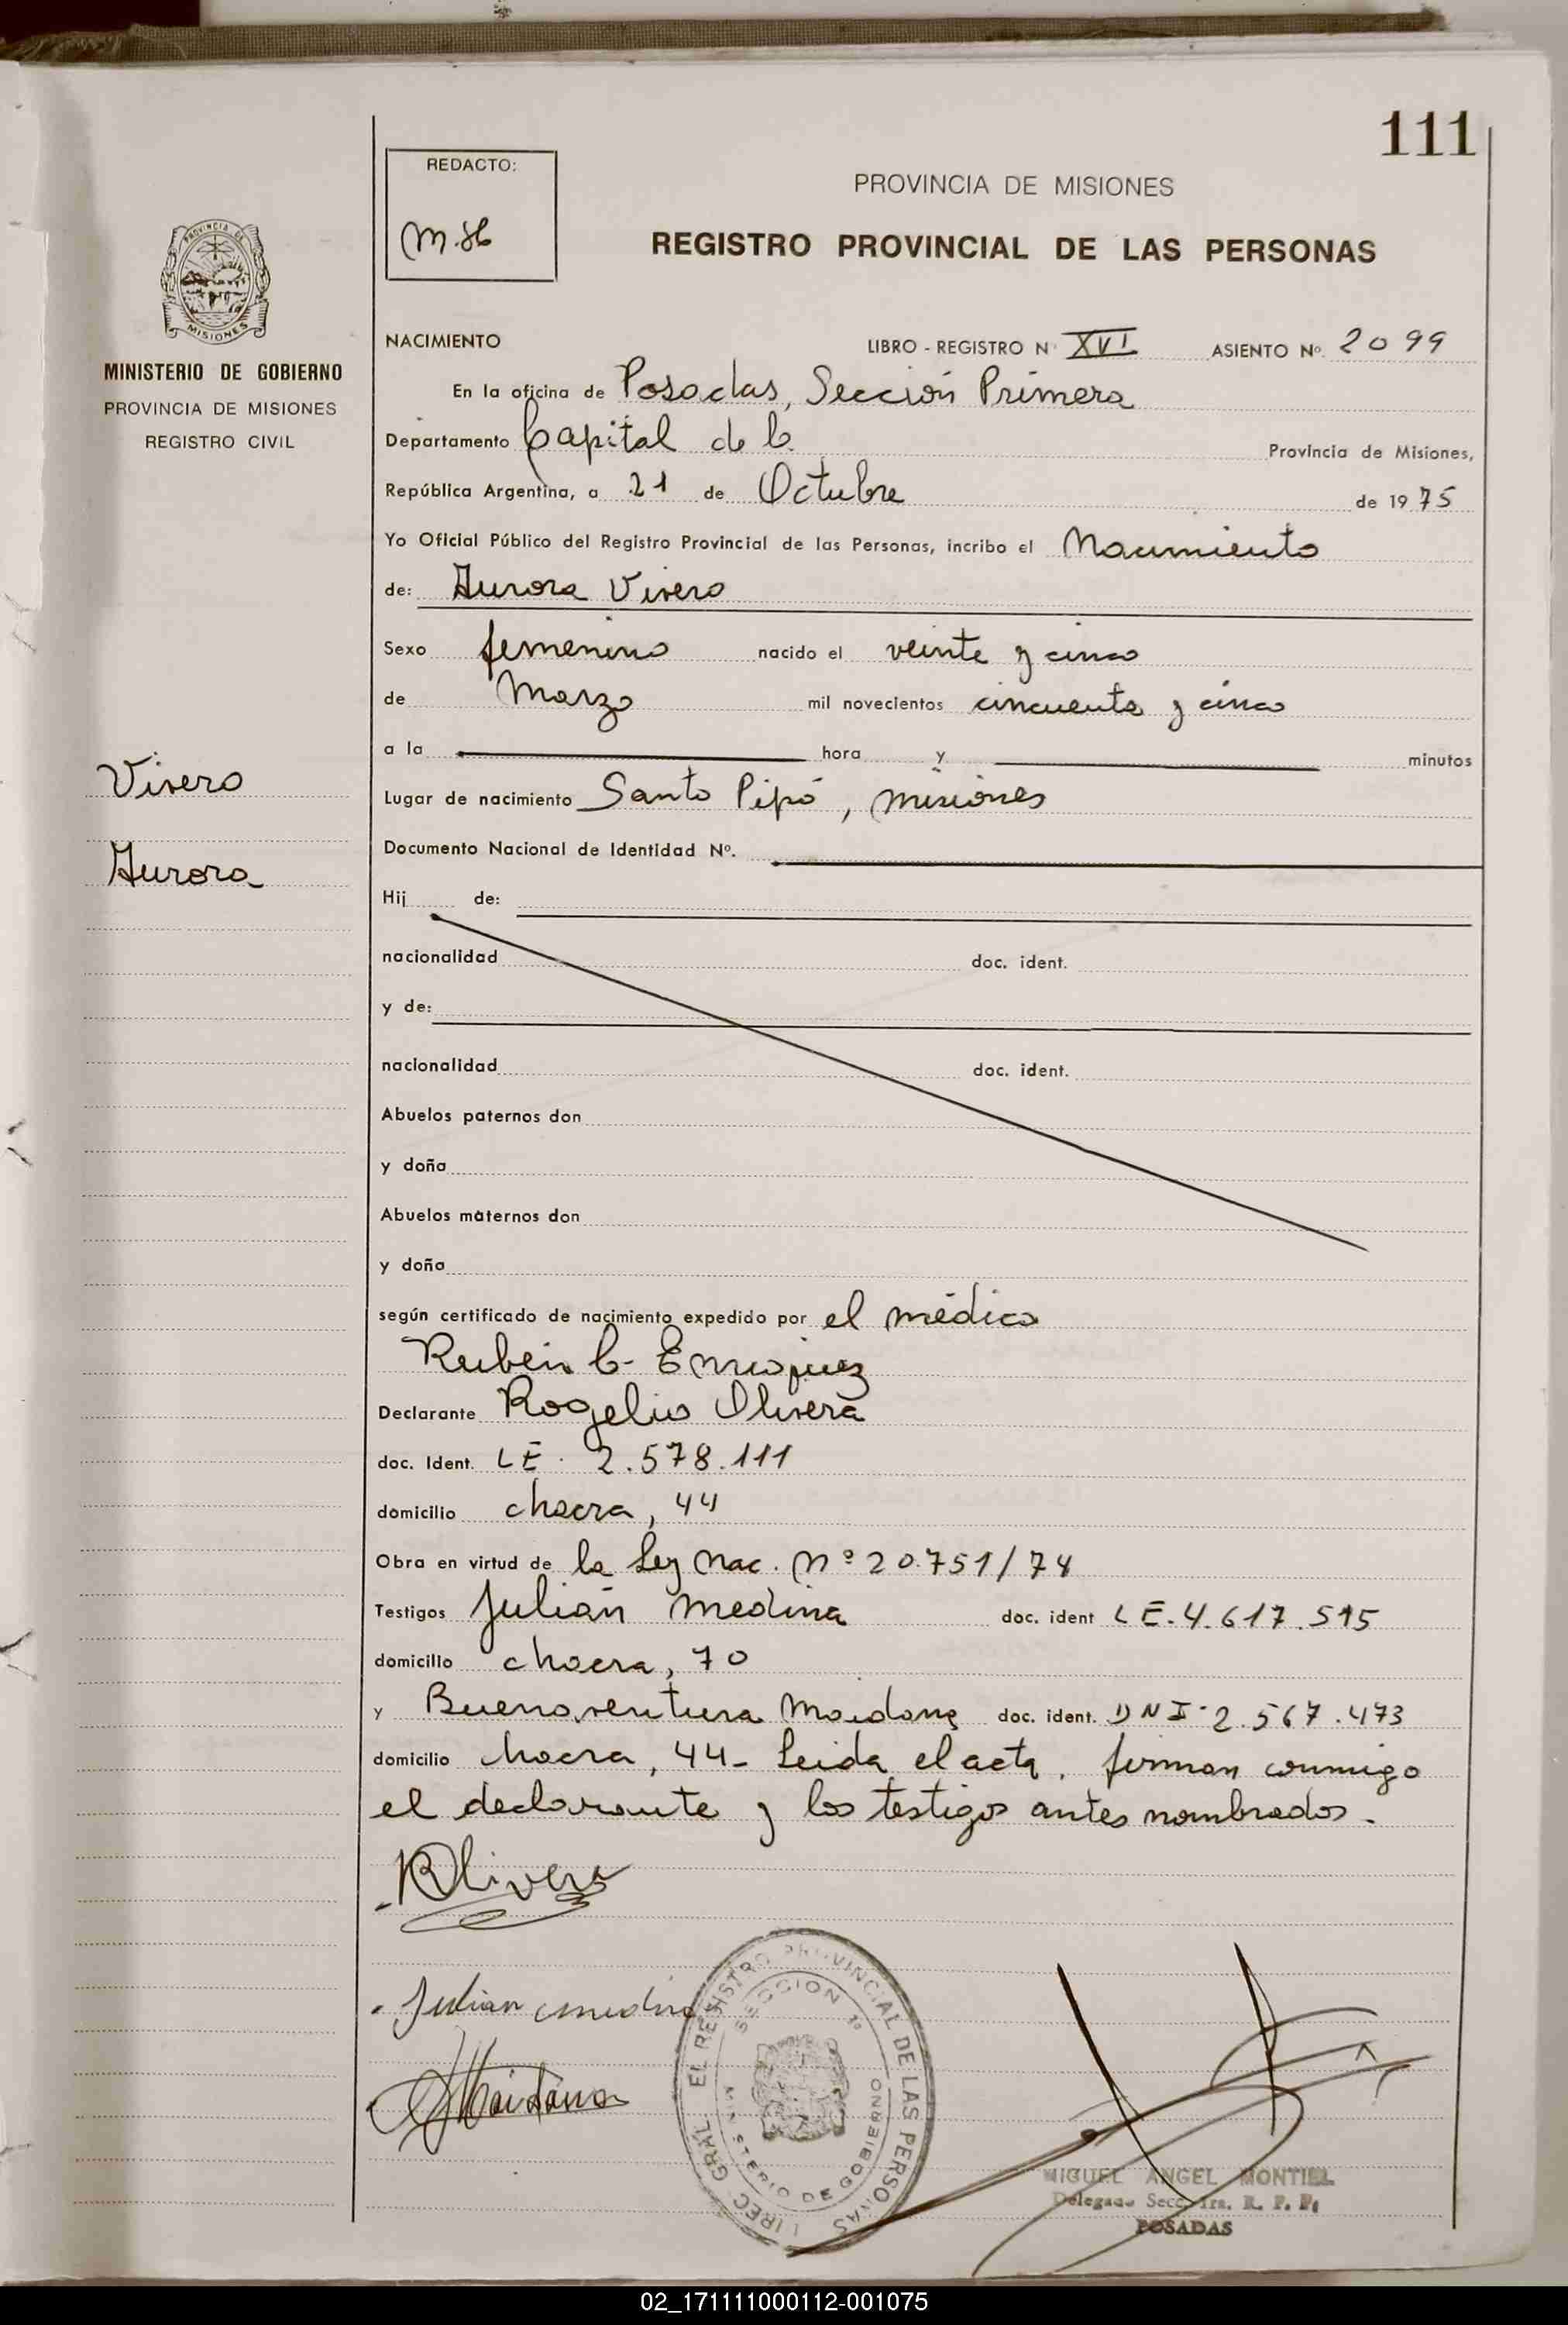 111
REDACTO:
PROVINCIA DE MISIONES
REGISTRO PROVINCIAL DE LAS PERSONAS
PROVINCIA DE
MISIONES
MINISTERIO DE GOBIERNO
PROVINCIA DE MISIONES
REGISTRO CIVIL
NACIMIENTO LIBRO - REGISTRO N° XVI ASIENTO Nº. 2099
En la oficina de Posadas, Sección Primera
Departamento Capital de la Provincia de Misiones,
República Argentina, a 21 de Octubre de 1975
Yo Oficial Público del Registro Provincial de las Personas, incribo el Nacimiento
de: Aurora Vivero
Sexo femenino nacido el veinte y cinco
de Marzo mil novecientos cincuenta y cinco
a la hora y minutos
Vivero
Aurora
Lugar de nacimiento Santo Pipó, Misiones
Documento Nacional de Identidad Nº.
Hij de:
nacionalidad doc. ident.
y de:
nacionalidad doc. ident.
Abuelos paternos don
y doña
Abuelos maternos don
y doña
según certificado de nacimiento expedido por el médico
Rubén C. Enriquez
Declarante Rogelio Olivera
doc. Ident. LE. 2.578.111
domicilio chacra, 44
Obra en virtud de la Ley Nac. Nº 20.751/74
Testigos Julián Medina doc. ident LE. 4.617.515
domicilio chacra, 70
y Buenaventura Maidana doc. ident. DNI. 2.567.473
domicilio chacra, 44- Leida el acta, firman conmigo
el declarante y los testigos antes nombrados.
ROlivera
Julian medina
Maidana
DIREC. GRAL. EL REGISTRO PROVINCIAL DE LAS PERSONAS
SECCION 1ª
MINISTERIO DE GOBIERNO
MIGUEL ANGEL MONTIEL
Delegado Secc. 1ra. R. P. P.
POSADAS
02_171111000112-001075